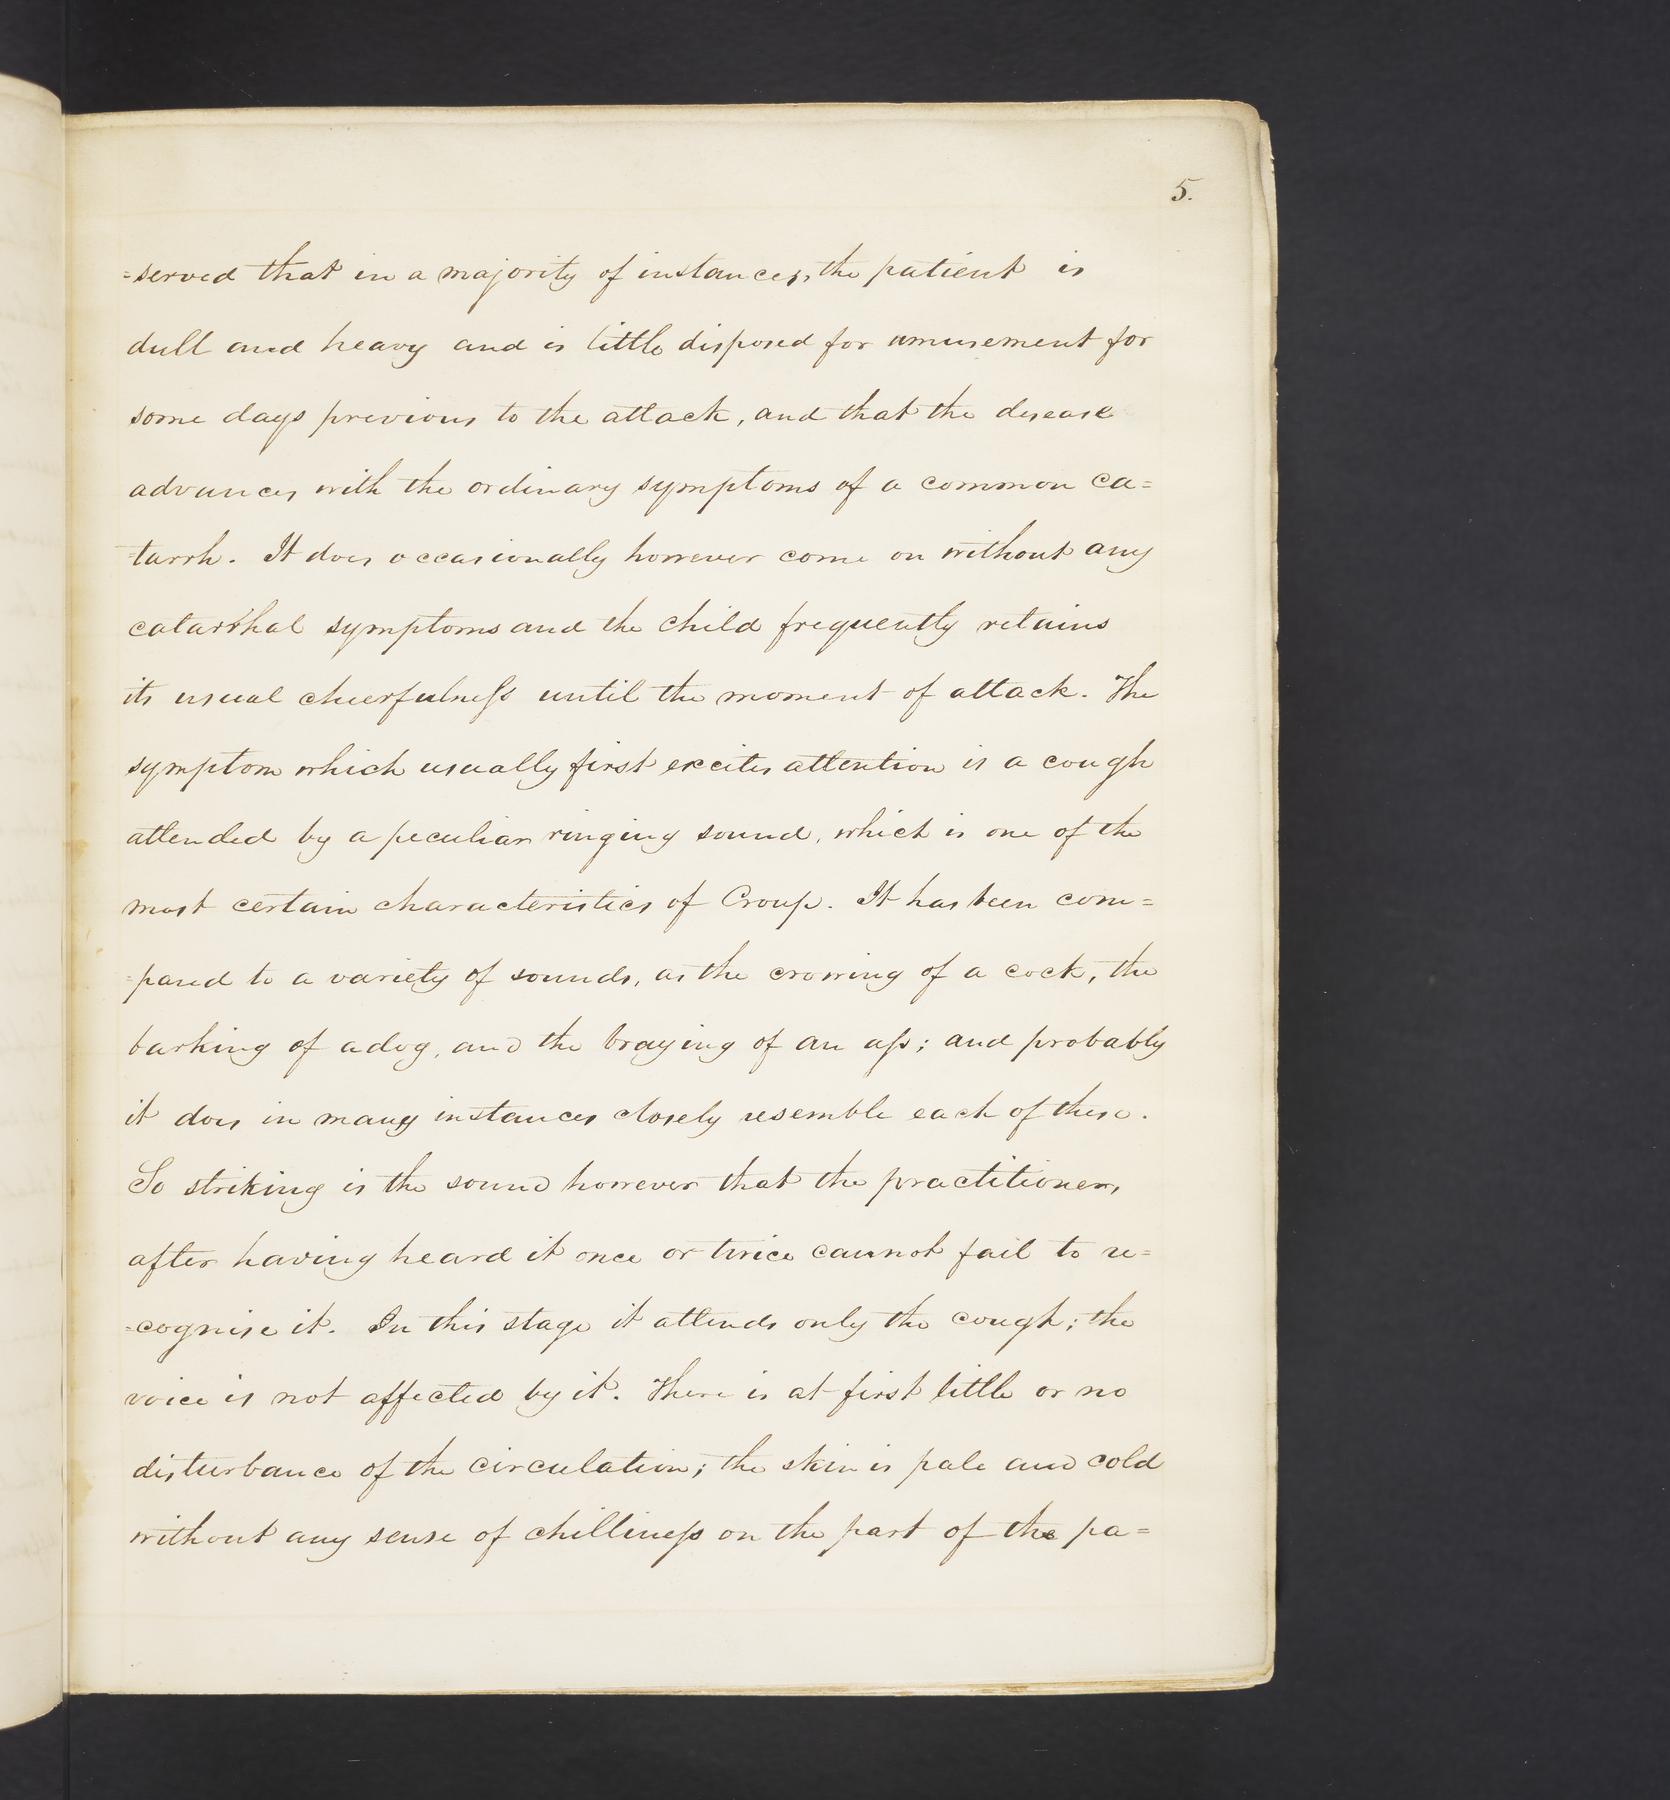 5.
=served that in a majority of instances, the patient is
dull and heavy and is little disposed for amusement for
some days previous to the attack, and that the disease
advances with the ordinary symptoms of a common ca=
=tarrh. It does occasionally however come on without any
catarrhal symptoms and the child frequently retains
its usual cheerfulness until the moment of attack. The
symptom which usually first excites attention is a cough
attended by a peculiar ringing sound, which is one of the
most certain characteristics of Croup. It has been com=
=pared to a variety of sounds, as the crowing of a cock, the
barking of a dog, and the braying of an ass; and probably
it does in many instances closely resemble each of these.
So striking is the sound however that the practitioner,
after having heard it once or twice cannot fail to re=
=cognise it. In this stage it attends only the cough; the
voice is not affected by it. There is at first little or no
disturbance of the circulation; the skin is pale and cold
without any sense of chilliness on the part of the pa=